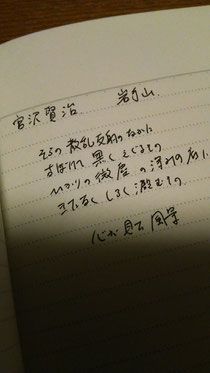 宮沢賢治 岩手山
そらの散乱反射のなかに
古ぼけて 黒くえぐるもの
微塵の深みの底に
きたなくしろく澱むもの
心が